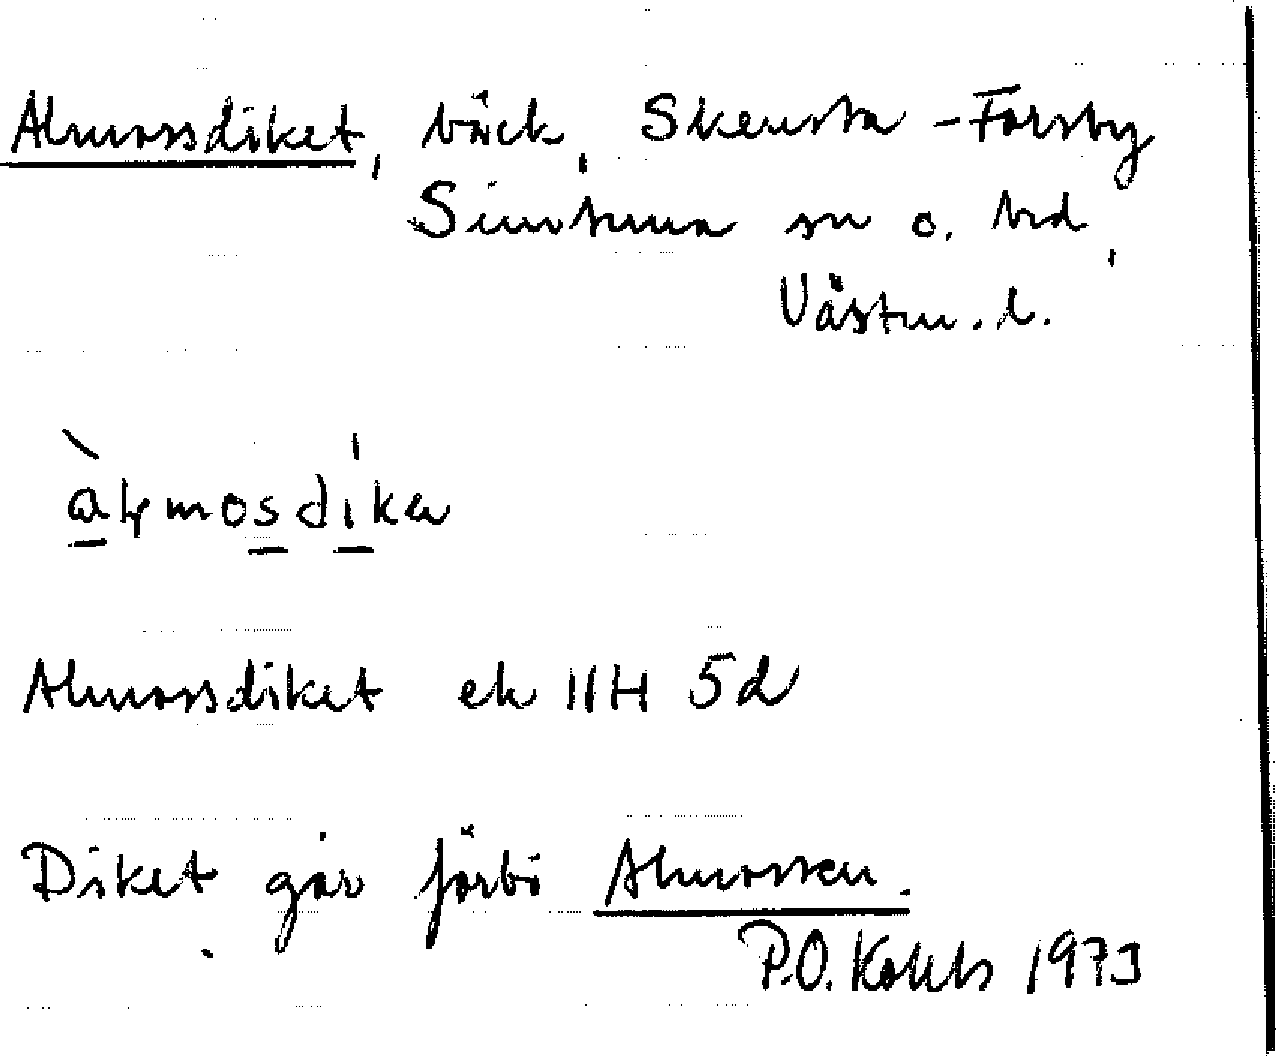 Almossdiket, bäck, Skensta - Forsby
Simtuna sn o. hd,
Västm. l.
àḷmosdíkə
Almossdiket ek 11H 5d
Diket går förbi Almossen.
P.O. 1973